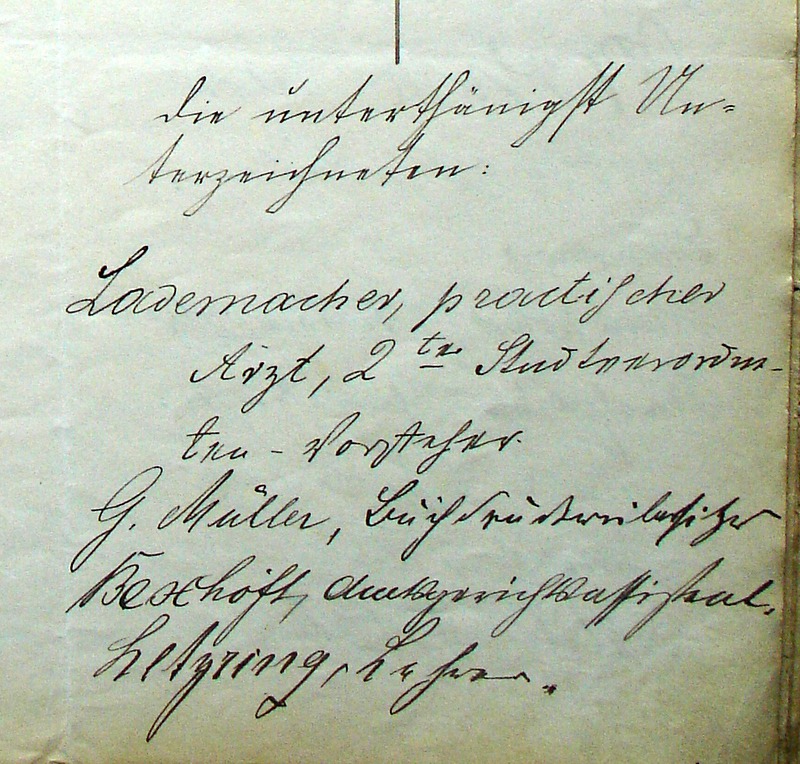 die unterthänigst Un=
terzeichneten:
Lademacher, practischer
Arzt, 2 ter Stadtverordne-
ten-Vorsteher
G. Müller, Buchdruckereibesitzer
Beckhöft, Amtsgerichtsassistent.
Letzring, Lehrer.